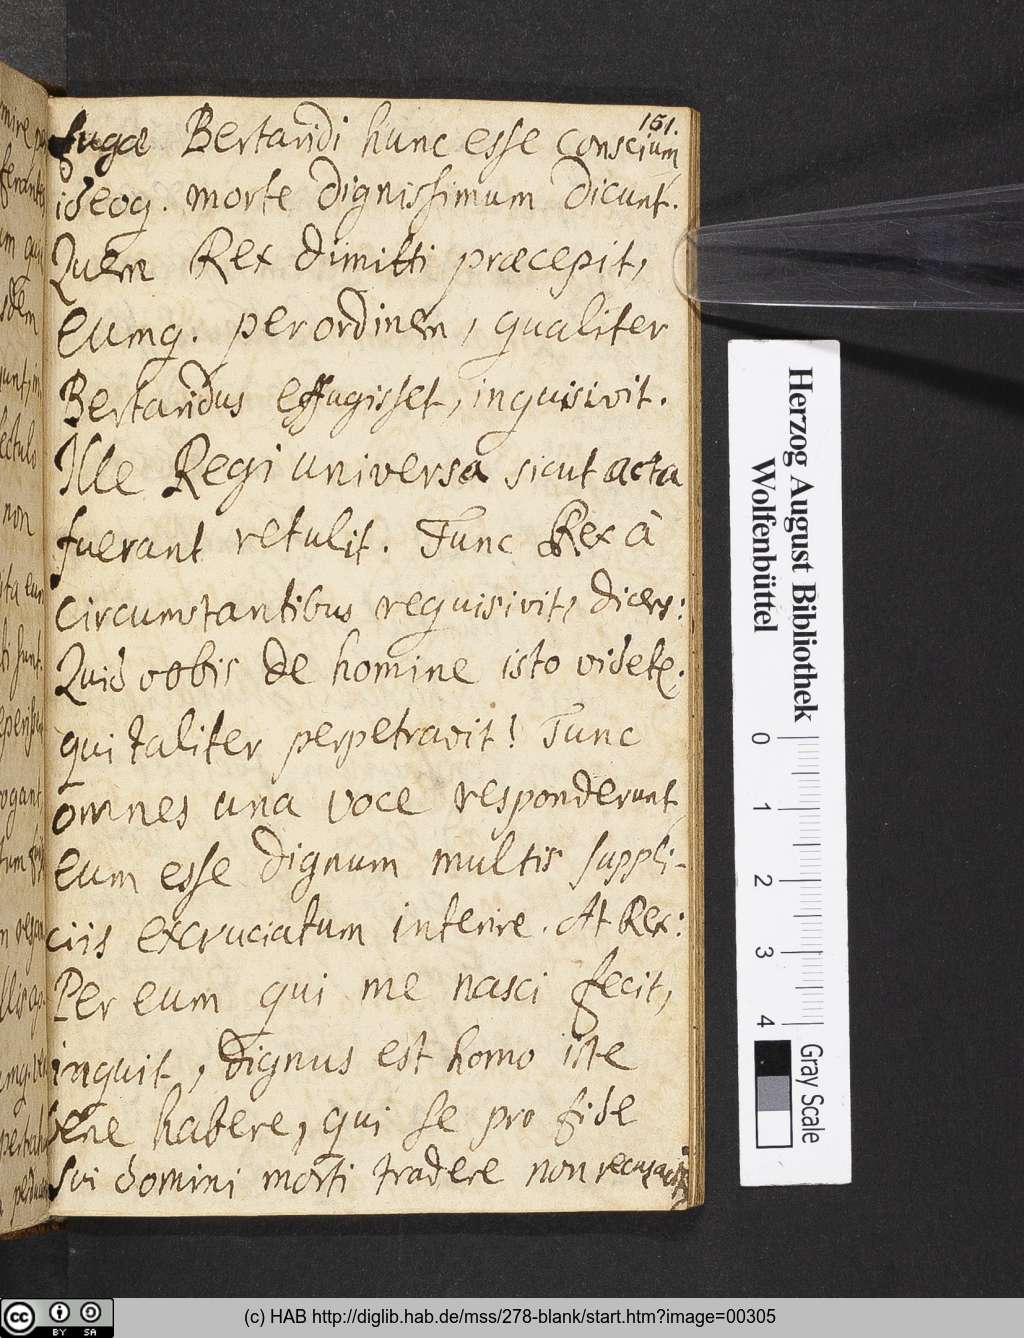 151.
fugæ Bertaridi hunc esse conscium
ideoq. morte dignissimum dicunt.
Quem Rex dimitti præcepit,
eumq. per ordinem, qualiter
Bertaridus effugisset, inquisivit.
Ille Regi universa sicut acta
fuerant retulit. Tunc Rex à
circumstantibus requisivit, dicens:
Quid vobis de homine isto videtr.
qui taliter perpetravit! Tunc
omnes una voce responderunt
eum esse dignum multis suppli-
ciis excruciatum interire. At Rex:
Per eum qui me nasci fecit,
inquit, dignus est homo iste
bene habere, qui se pro fide
sui domini morti tradere non recusavit
Herzog August Bibliothek
Wolfenbüttel
0 1 2 3 4
Gray Scale
cc BY SA
(c) HAB http://diglib.hab.de/mss/278-blank/start.htm?image=00305